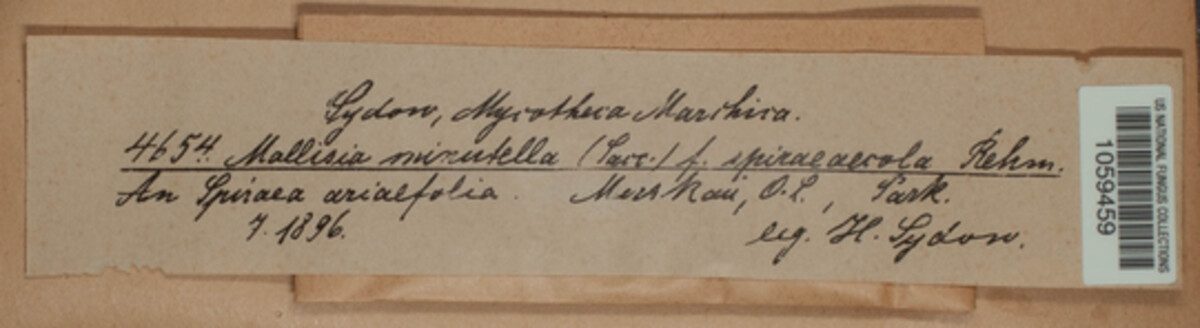 Sydow, Mycotheca Marchica.
4654. Mollisia minutella (Sacc.) f. spiraeaecola Rehm.
An Spiraea ariaefolia. Muskau, O.L., Park.
7. 1896. leg. H. Sydow.
US NATIONAL FUNGUS COLLECTIONS
1059459